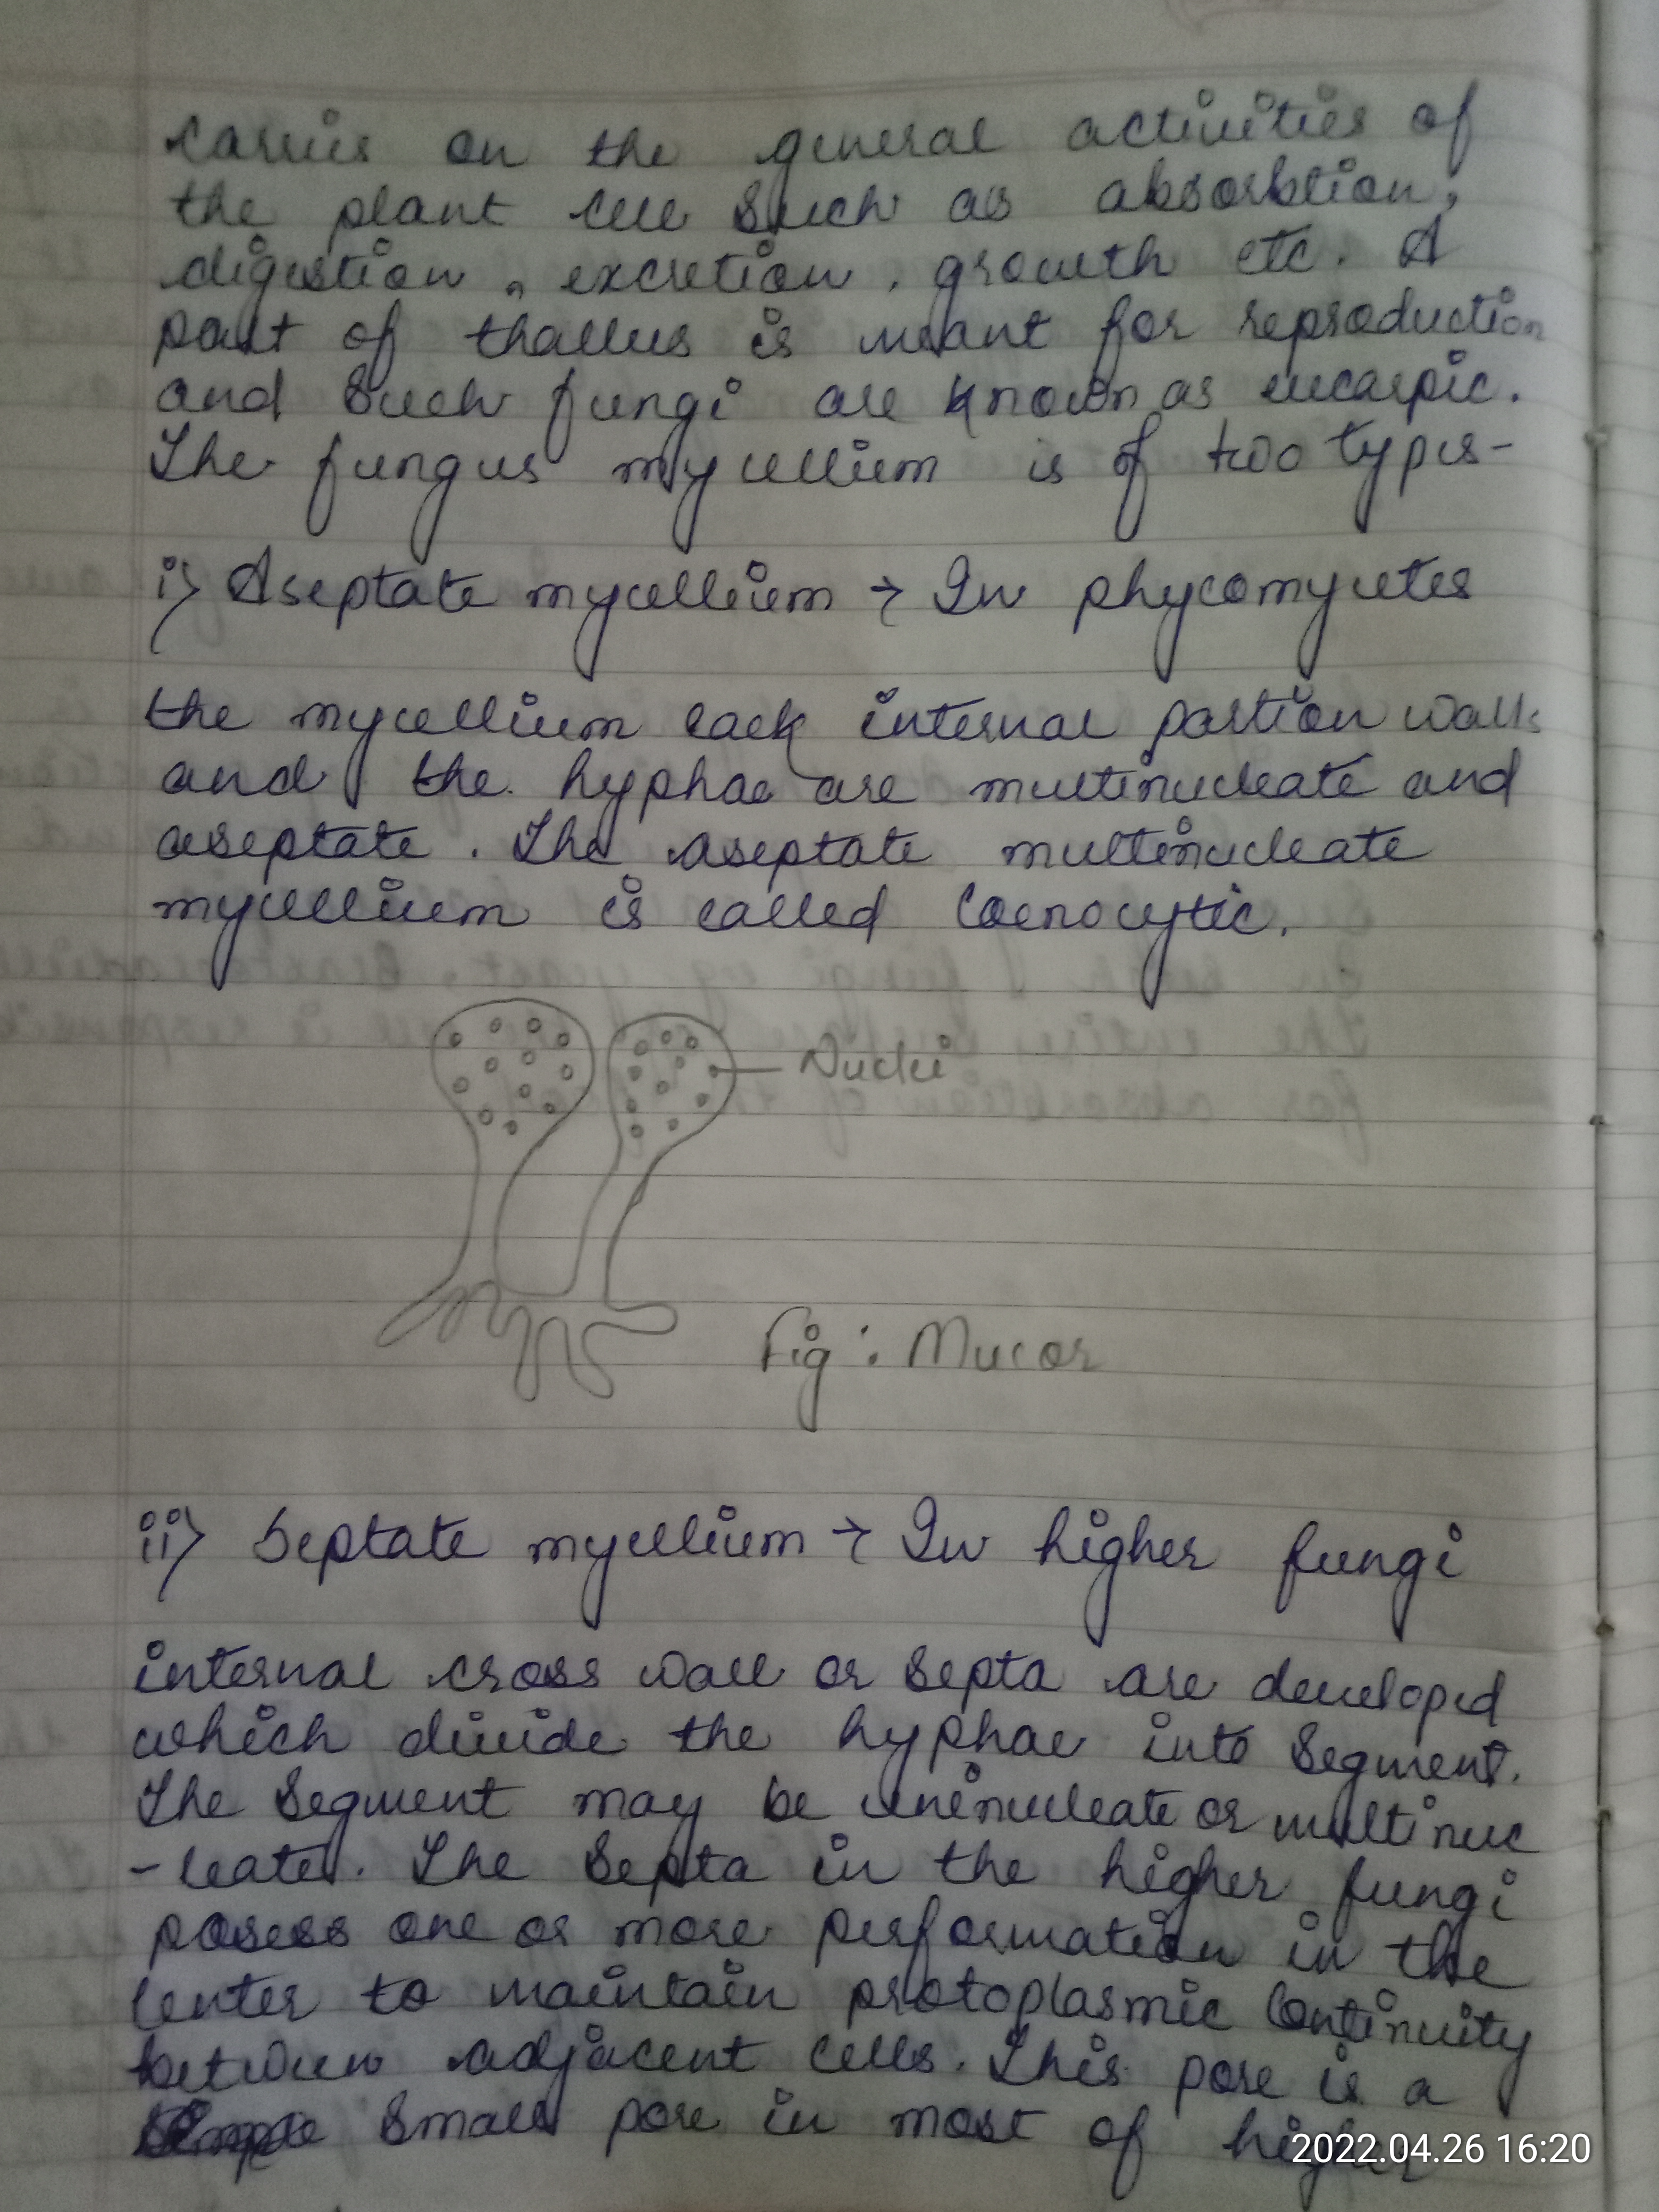 carries on the general activities of
the plant cell such as absorbtion,
digestion, excretion, growth etc. A
part of thallus is meant for reproduction
and such fungi are known as eucarpic.
The fungus mycellium is of two types-
i) Aseptate mycellium → In phycomycetes
the mycellium lack internal partion walls
and the hyphae are multinucleate and
aseptate. The aseptate multinucleate
mycellium is called Coenocytic.
Nuclei
Fig : Mucor
ii) Septate mycellium → In higher fungi
internal cross wall or septa are developed
which divide the hyphae into segment.
The segment may be uninucleate or multinuc
-leate. The septa in the higher fungi
posess one or more performation in the
center to maintain protoplasmic Continuity
between adjacent cells. This pore is a
small pore in most of higher
2022.04.26 16:20